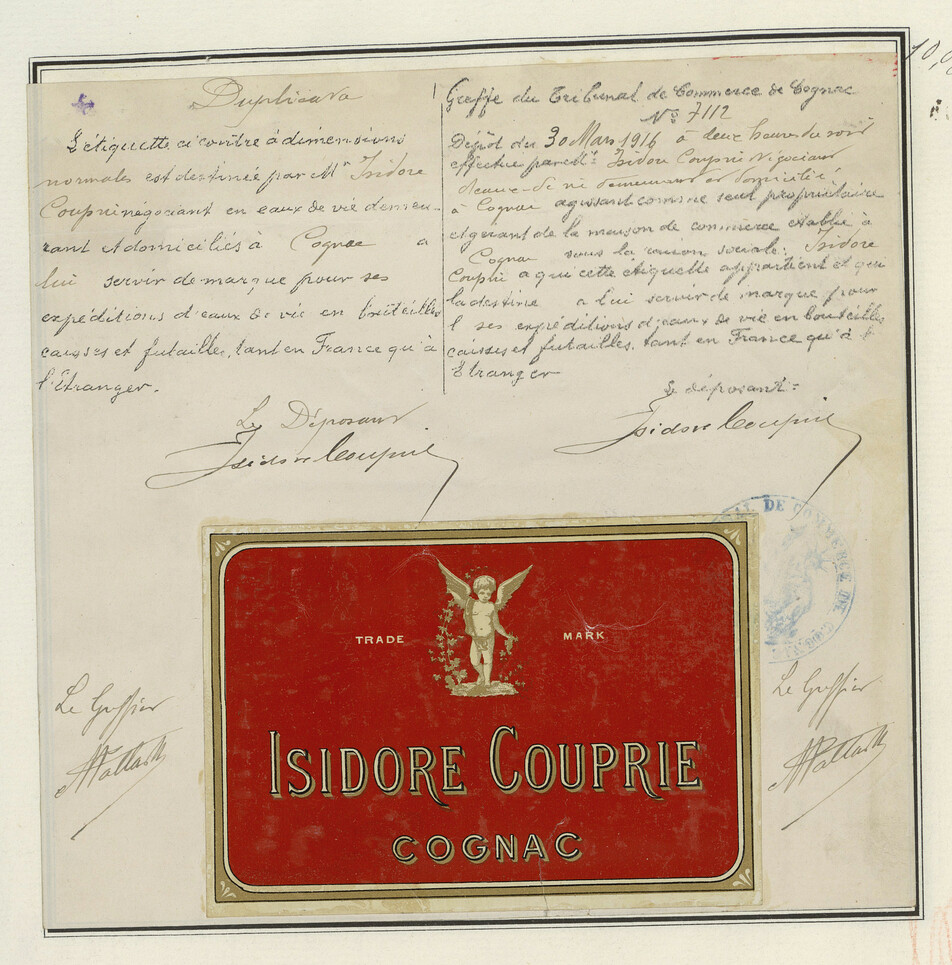 Duplicata
L'étiquette ci contre à dimensions
normales est destinée par Mr Isidore
Couprie négociant en eaux de vie demeu-
rant et domiciliés à Cognac a
lui servir de marque pour ses
expéditions d'eaux de vie en bouteilles
caisses et futailles, tant en France qu'à
l'Etranger.
Le Déposant
Isidore Couprie
Greffe du Tribunal de Commerce de Cognac
No 7112
Dépôt du 30 Mars 1916 à deux heures du soir
effectué par Mr Isidore Couprie Négociant
d'eaux-de vie demeurant et domicilié
à Cognac agissant comme seul propriétaire
et gérant de la maison de commerce établie à
Cognac sous la raison sociale: Isidore
Couprie a qui cette étiquette appartient et qui
la destine a lui servir de marque pour
ses expéditions d'eaux de vie en bouteilles
caisses et futailles, tant en France qu'à
Etranger
Le déposant =
Isidore Couprie
DE COMMERCE DE
TRADE MARK
ISIDORE COUPRIE
COGNAC
Le Greffier
Le Greffier